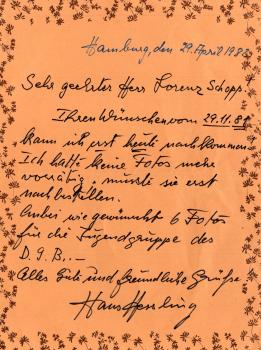 Hamburg, den 29. April 1983
Sehr geehrter Herr Lorenz Schopp.
Ihren Wünschen vom 29.11.81
kann ich erst heute nachkommen
Ich hatte keine Fotos mehr
vorrätig, müsste sie erst
nachbestellen.
Anbei wie gewünscht 6 Fotos
für die Jugendgruppe des
D.G.B..-
Alles Gute und freundliche Grüße
Hans Hessling